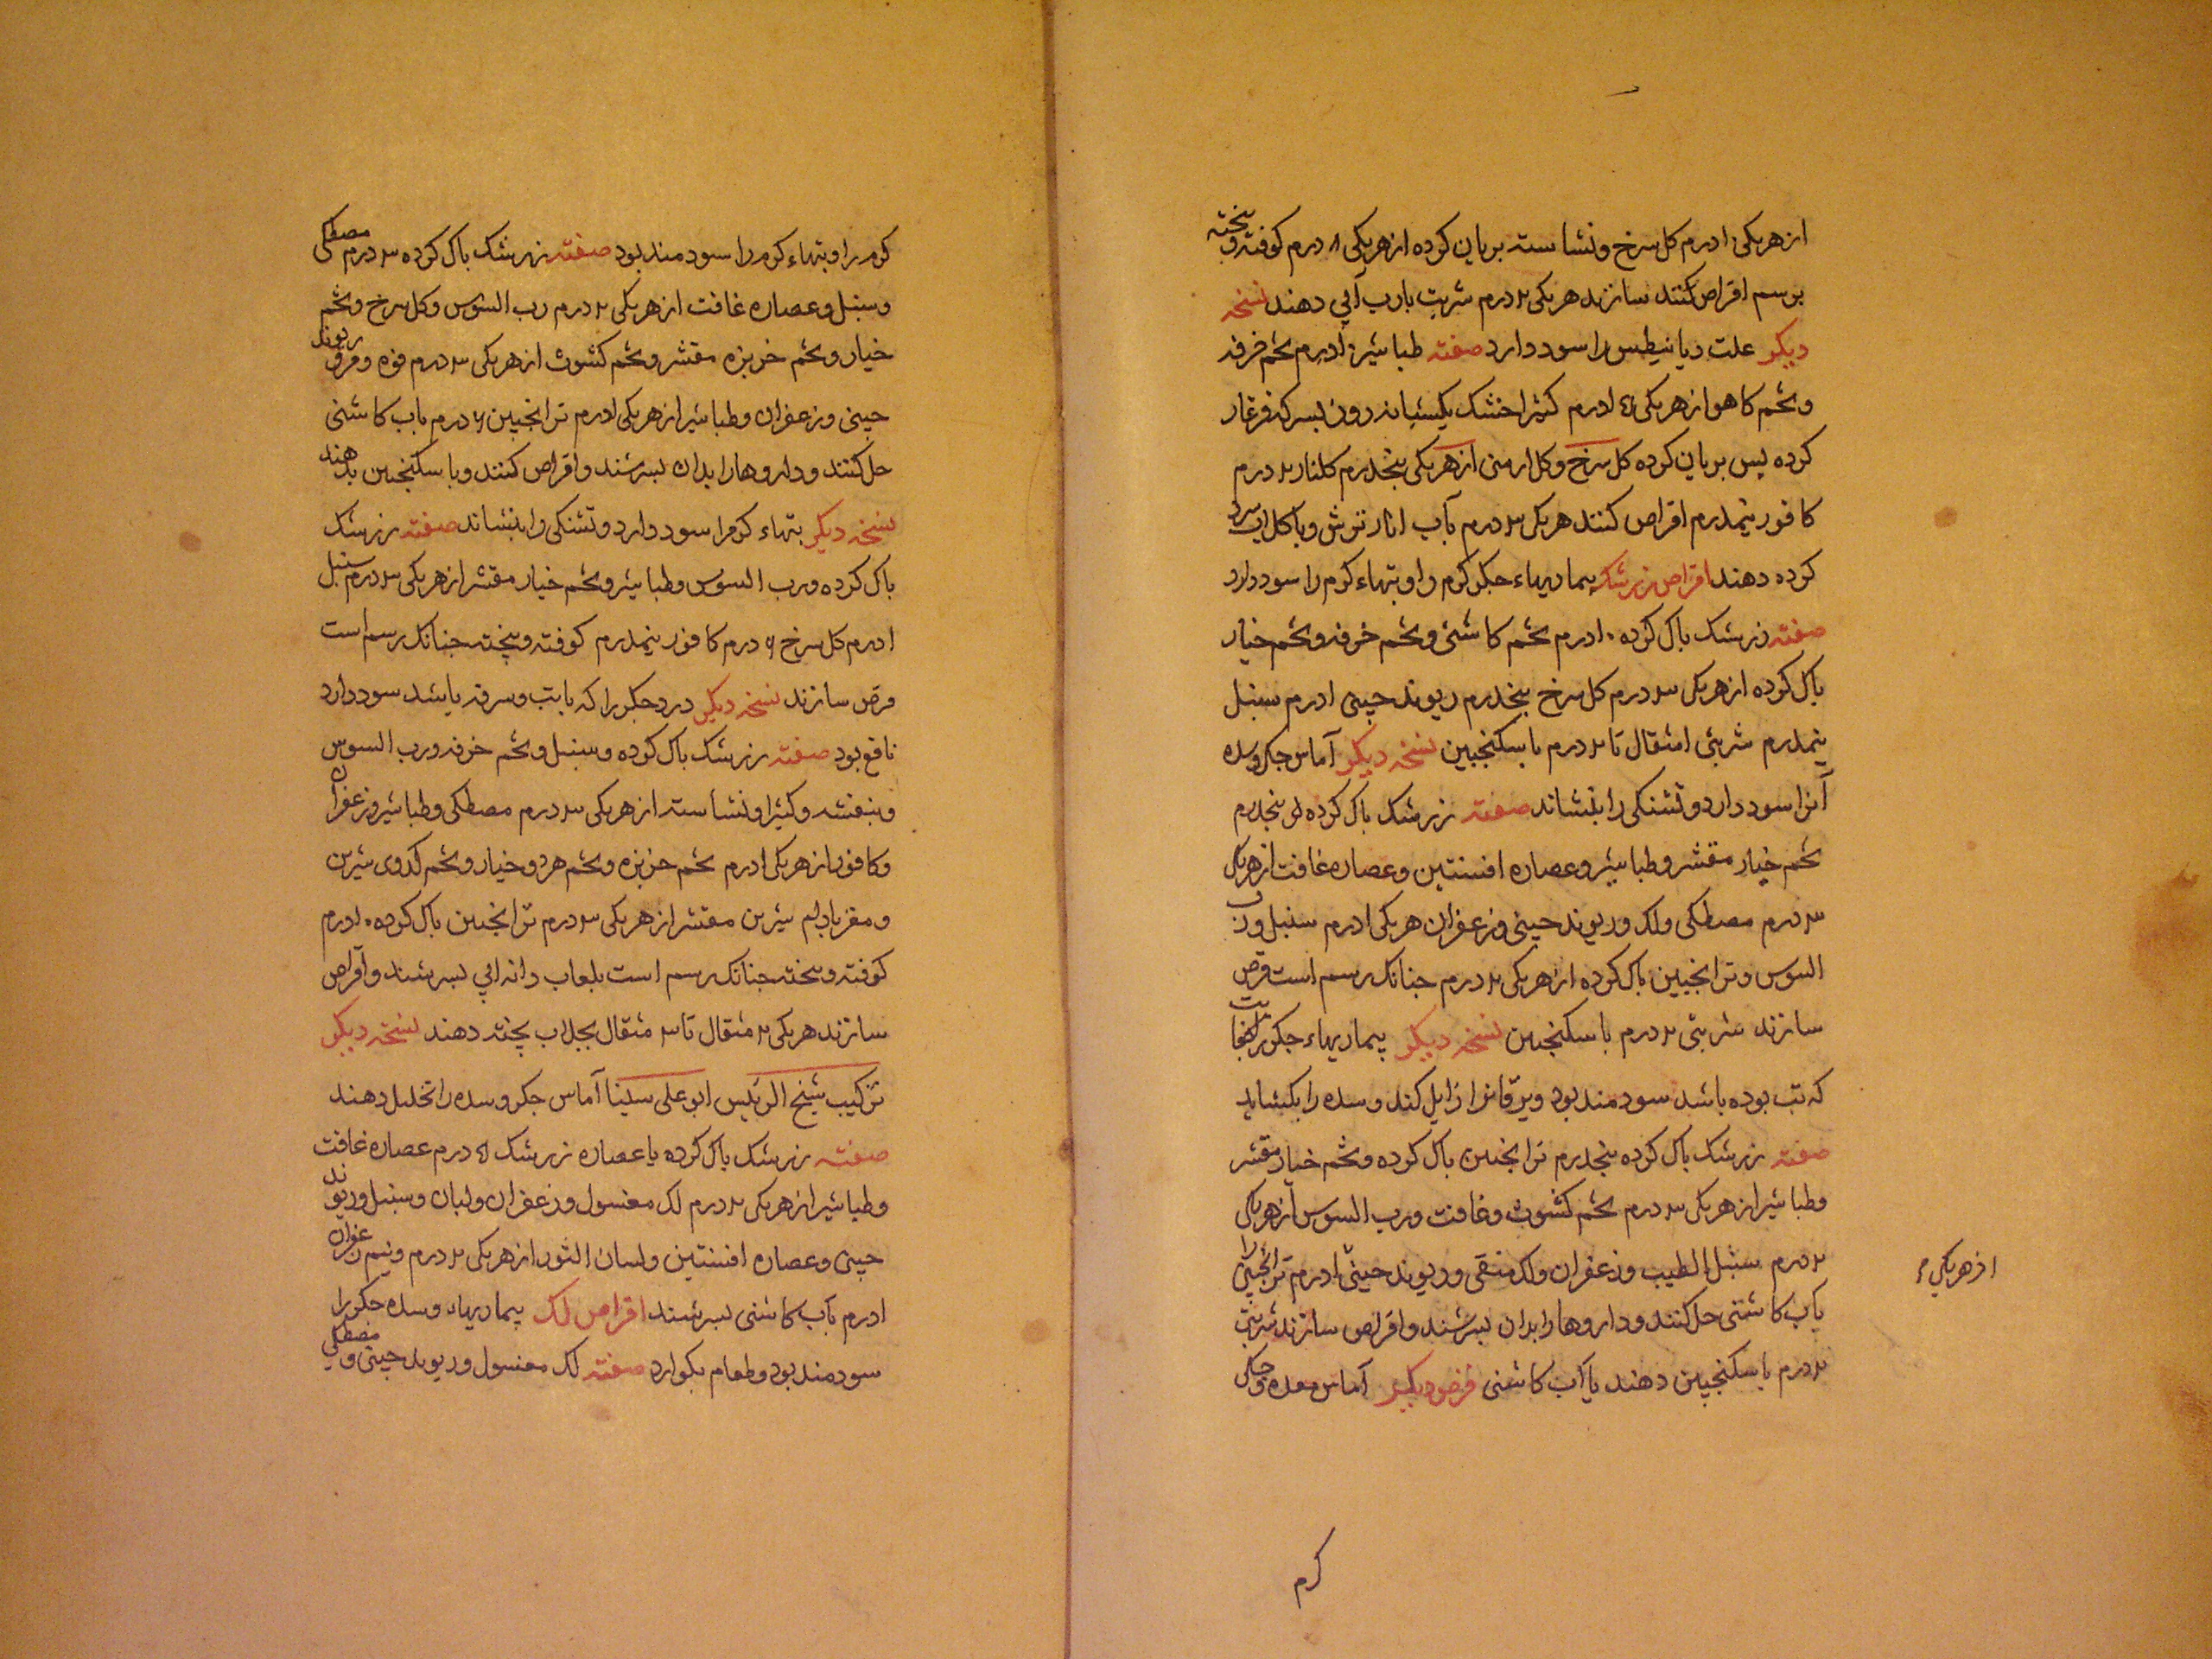 از هر یکی ۱ درم کل سرخ و نشاسته بریان کرده از هر یکی ۸ درم کوفته و بیخته
برسم اقراص کنند سازند هر یکی ۲ درم شربت بارب آبی دهند نسخه
دیکر علت دیانیطس را سود دارد صفته طباشیر ۱۰ درم تخم خرفه
و تخم کاهو از هر یکی درم کتیرا خشک یکشبانه روز بسرکه
کرده پس بریان کرده کل سرخ و کل ارمنی از هر یکی پنجدرم کلنار ۲ درم
کافور نیمدرم اقراص کنند هر یکی ۳ درم بآب انار ترش و یا کلاب سرد
کرده دهند اقراص زرشک بیماریهاء جکر کرم را و تبهاء کرم را سود دارد
صفته زرشک پاک کرده ۱۰ درم تخم کاشنی و تخم خرفه و تخم خیار
پاک کرده از هر یکی ۳ درم کل سرخ پنجدرم ریوند چینی ۱ درم سنبل
نیمدرم شربتی ۱ مثقال تا ۲ درم با سکنجبین نسخه دیکر آماس جکر و سده
آنرا سود دارد و تشنکی را بنشاند صفته زرشک پاک کرده پنجدرم
تخم خیار مقشر و طباشیر و عصاره افسنتین و عصاره غافت از هر یکی
۳ درم مصطکی و لک و ریوند چینی و زعفران هر یکی ۱ درم سنبل و رب
السوس و ترانجبین پاک کرده از هر یکی ۲ درم جنانک رسم است قرص
سازند شربتی ۲ درم با سکنجبین نسخه دیکر بیماریهاء جکر را
که تب بوده باشد سودمند بود و یرقانرا زایل کند و سده را بکشاید
صفته زرشک پاک کرده پنجدرم ترانجبین پاک کرده و تخم خیار مقشر
و طباشیر از هر یکی ۳ درم تخم کشوث و غافت و رب السوس از هر یکی
۲ درم سنبل الطیب و زعفران و لک منقی و ریوند چینی ۱ درم ترانجبین را
از هر یکی
بآب کاشنی حل کنند و داروها را بدان بسرشند و اقراص سازند شربتی
۲ درم با سکنجبین دهند یا آب کاشنی قرص دیکر آماس معده و جکر
کرم
کرم را و تبهاء کرم را سودمند بود صفته زرشک پاک کرده ۳ درم مصطکی
و سنبل و عصاره غافت از هر یکی ۲ درم رب السوس و کل سرخ و تخم
خیار و تخم خربزه مقشر و تخم کشوث از هر یکی ۳ درم فوه و ریوند
چینی و زعفران و طباشیر از هر یکی ۱ درم ترانجبین ۶ درم بآب کاشنی
حل کنند و داروها را بدان بسرشند و اقراص کنند و با سکنجبین بدهند
نسخه دیکر تبهاء کرم را سود دارد و تشنکی را بنشاند صفته زرشک
پاک کرده و رب السوس و طباشیر و تخم خیار مقشر از هر یکی ۳ درم سنبل
۱ درم کل سرخ ۶ درم کافور نیمدرم کوفته و بیخته جنانک رسم است
قرص سازند نسخه دیکر درد جکر را که با تب و سرفه باشد سود دارد
نافع بود صفته زرشک پاک کرده و سنبل و تخم خرفه و رب السوس
و بنفشه و کتیرا و نشاسته از هر یکی ۳ درم مصطکی و طباشیر و زعفران
و کافور از هر یکی ۱ درم تخم خربزه و تخم هر دو خیار و تخم کدوی شیرین
و مغز بادام شیرین مقشر از هر یکی ۳ درم ترانجبین پاک کرده ۱۰ درم
کوفته و بیخته جنانک رسم است بلعاب دانه آبی بسرشند و اقراص
سازند هر یکی ۲ مثقال تا ۳ مثقال بجلاب پخته دهند نسخه دیکر
ترکیب شیخ الرئیس ابو علی سینا آماس جکر و سده را تحلیل دهند
صفته زرشک پاک کرده یا عصاره زرشک ۵ درم عصاره غافت
و طباشیر از هر یکی ۲ درم لک مغسول و زعفران و لبان و سنبل و ریوند
چینی و عصاره افسنتین و لسان الثور از هر یکی ۲ درم و نیم زعفران
۱ درم بآب کاشنی بسرشند اقراص لک بیماریهاء و سده جکر را
سودمند بود و طعام بکوارد صفته لک مغسول و ریوند چینی و مصطکی